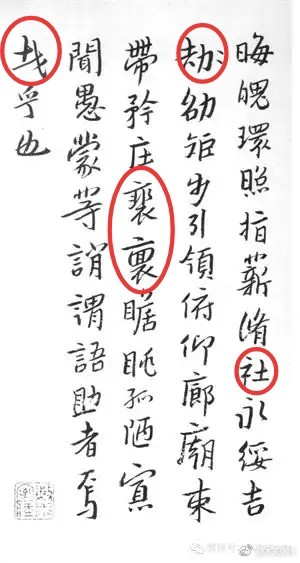 晦魄環照指薪脩社永綏吉
劫劭矩步引領俯仰廊廟束
帶矜庄裵裏瞻眺孤陋寡
聞愚蒙等誚謂語助者焉
哉乎也
微信号